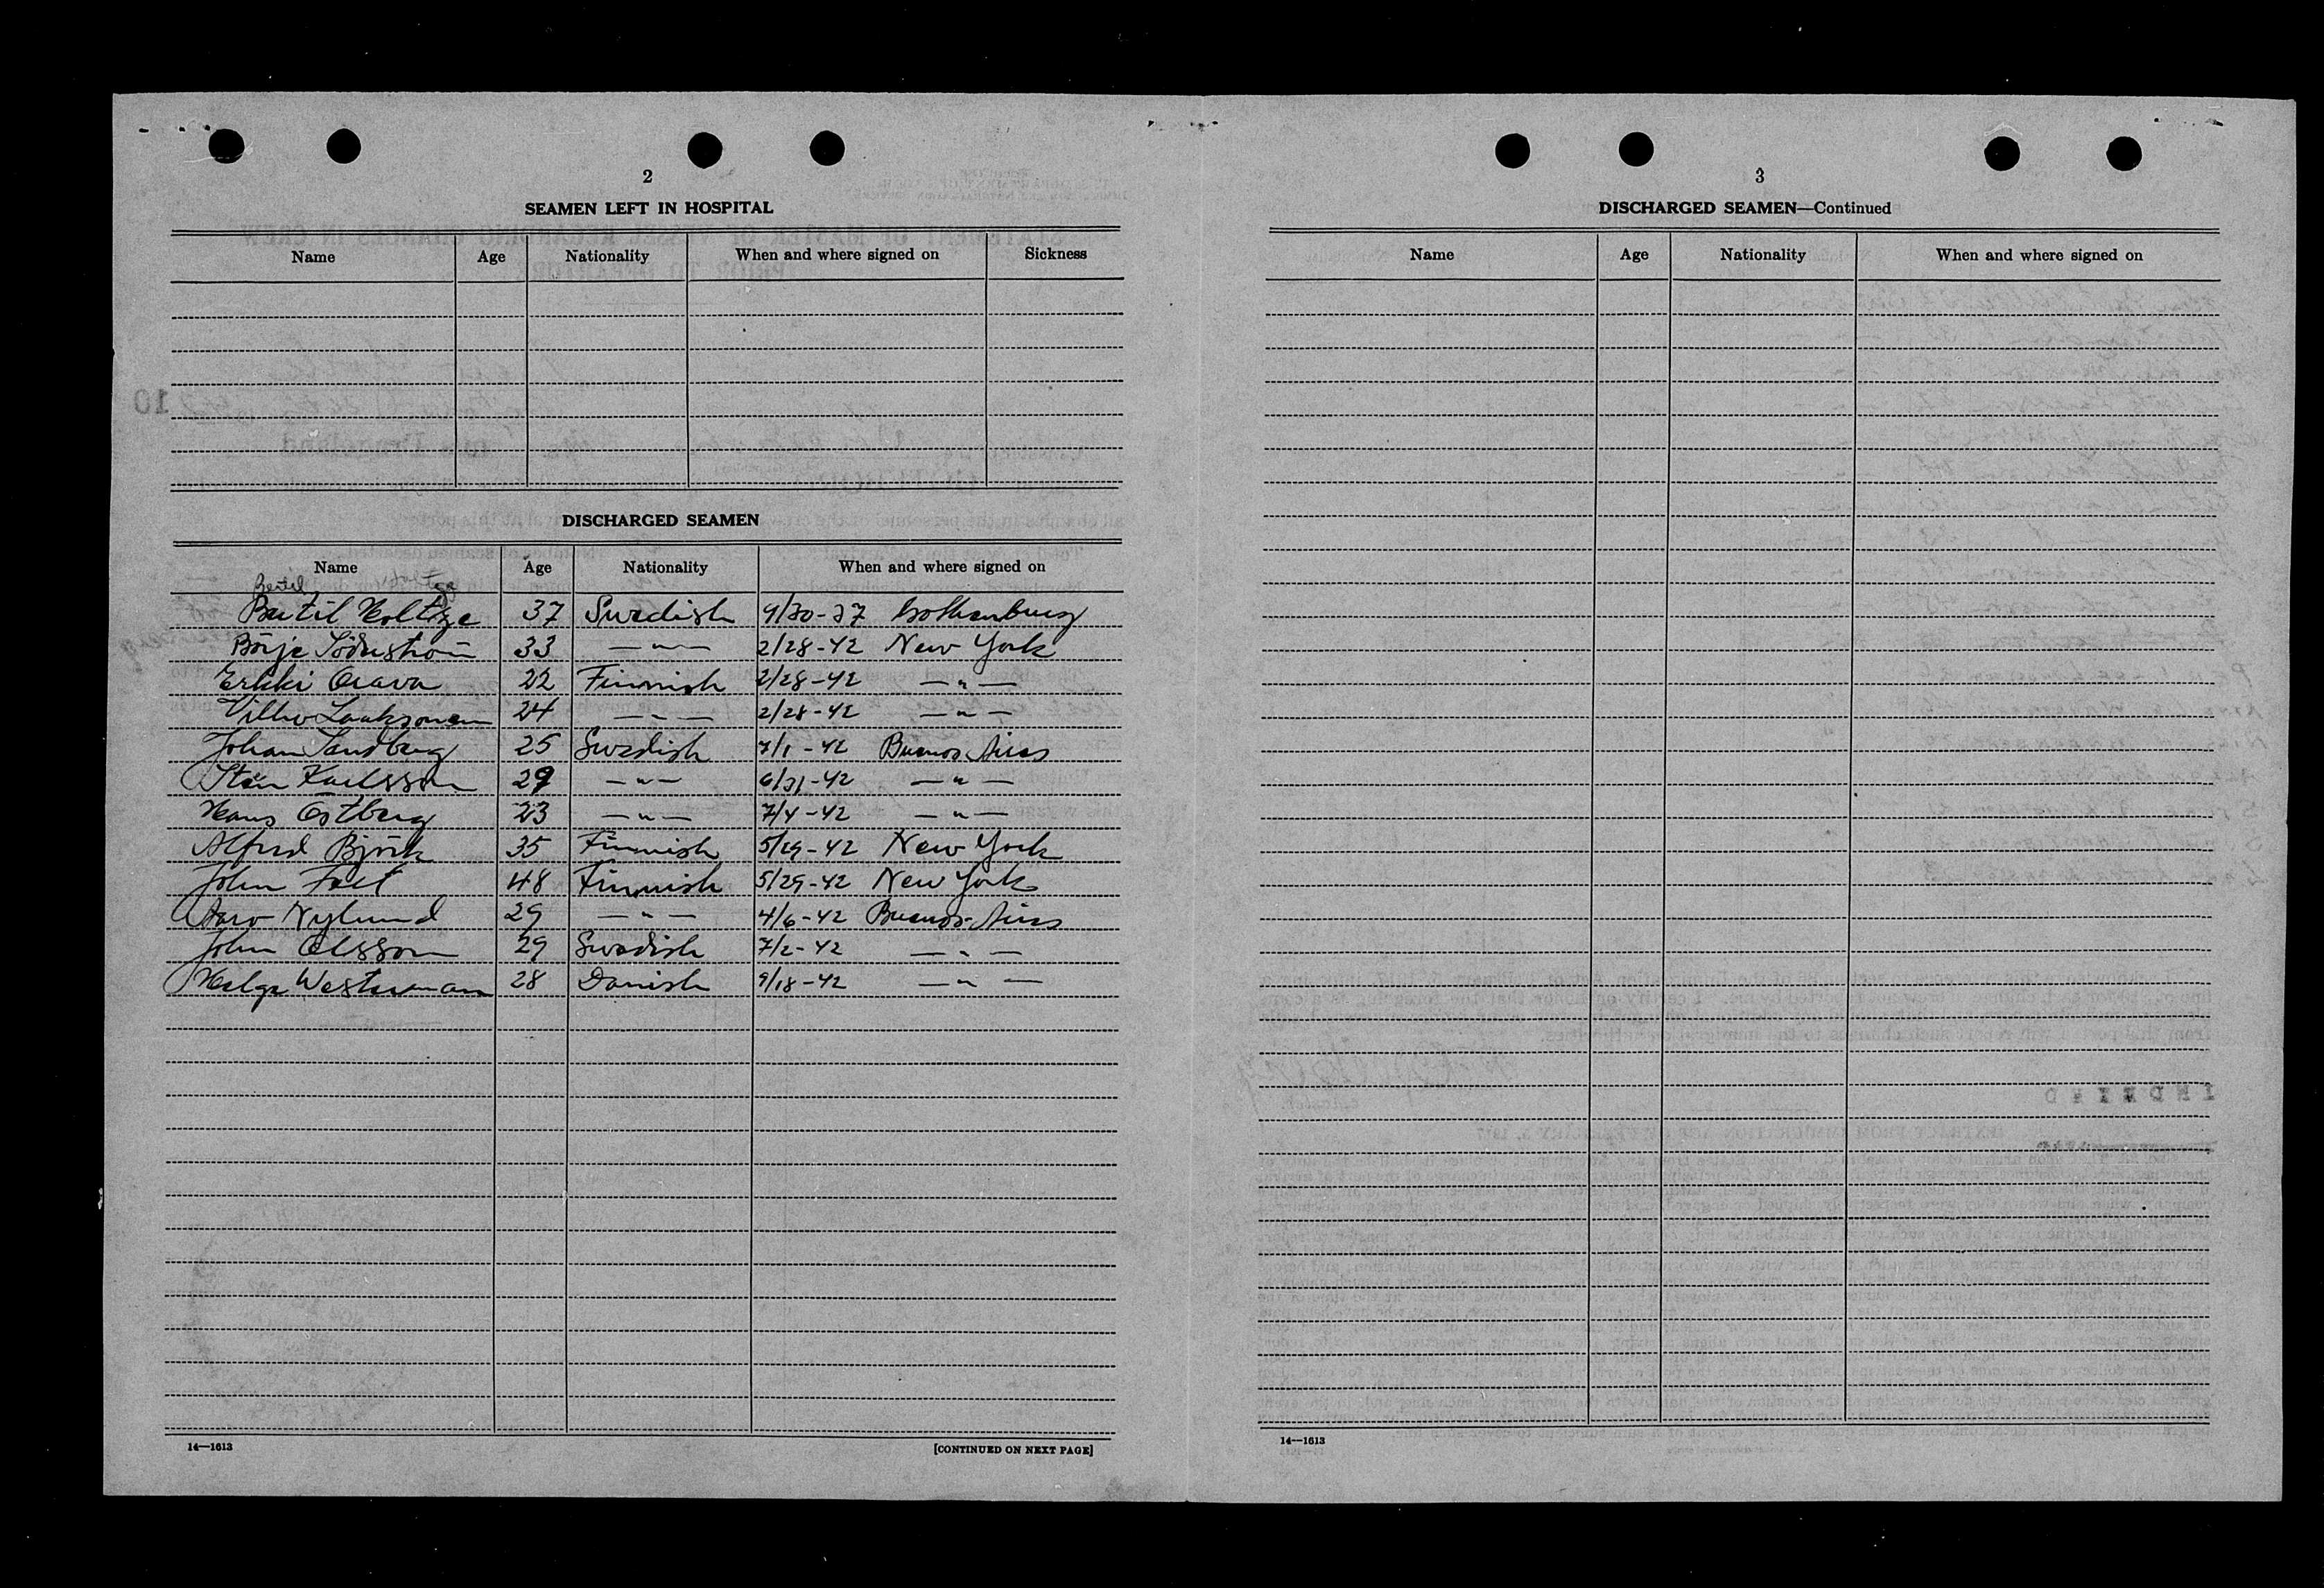 2
SEAMEN LEFT IN HOSPITAL
Name Age Nationality When and where signed on Sickness
DISCHARGED SEAMEN
Name Age Nationality When and where signed on
Bertil Holtzge
Bertil Holtzge 37 Swedish 9/30-37 Gothenburg
Börje Söderström 33 —〃— 2/28-42 New York
Erkki Orava 22 Finnish 2/28-42 —〃—
Vilho Laaksonen 24 —〃— 2/28-42 —〃—
Johan Sandberg 25 Swedish 7/1-42 Buenos Aires
Sten Karlsson 29 —〃— 6/31-42 —〃—
Hans Östberg 23 —〃— 7/4-42 —〃—
Alfred Björk 35 Finnish 5/29-42 New York
John 48 Finnish 5/29-42 New York
Aaro Nylund 29 —〃— 4/6-42 Buenos-Aires
John Olsson 29 Swedish 7/2-42 —〃—
Helge Westerman 28 Danish 9/18-42 —〃—
14—1613 [CONTINUED ON NEXT PAGE]
3
DISCHARGED SEAMEN—Continued
Name Age Nationality When and where signed on
14—1613